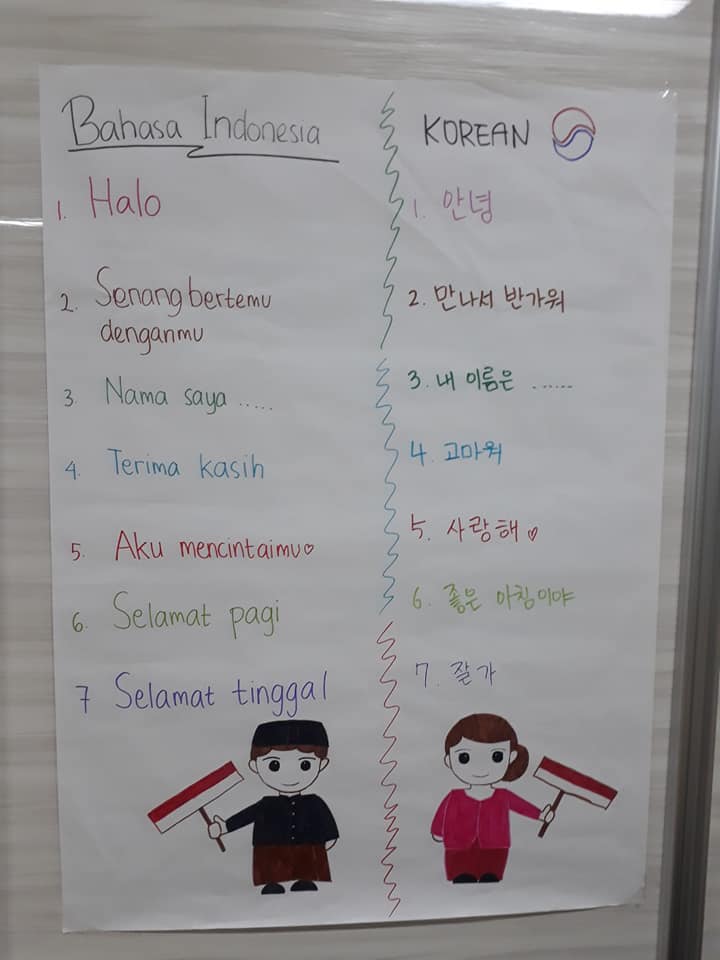 Bahasa Indonesia
1. Halo
2. Senang bertemu
denganmu
3. Nama saya .....
4. Terima kasih
5. Aku mencintaimu♡
6. Selamat pagi
7 Selamat tinggal
KOREAN
1. 안녕
2. 만나서 반가워
3. 내 이름은 ......
4. 고마워
5. 사랑해♡
6. 좋은 아침이야
7. 잘가